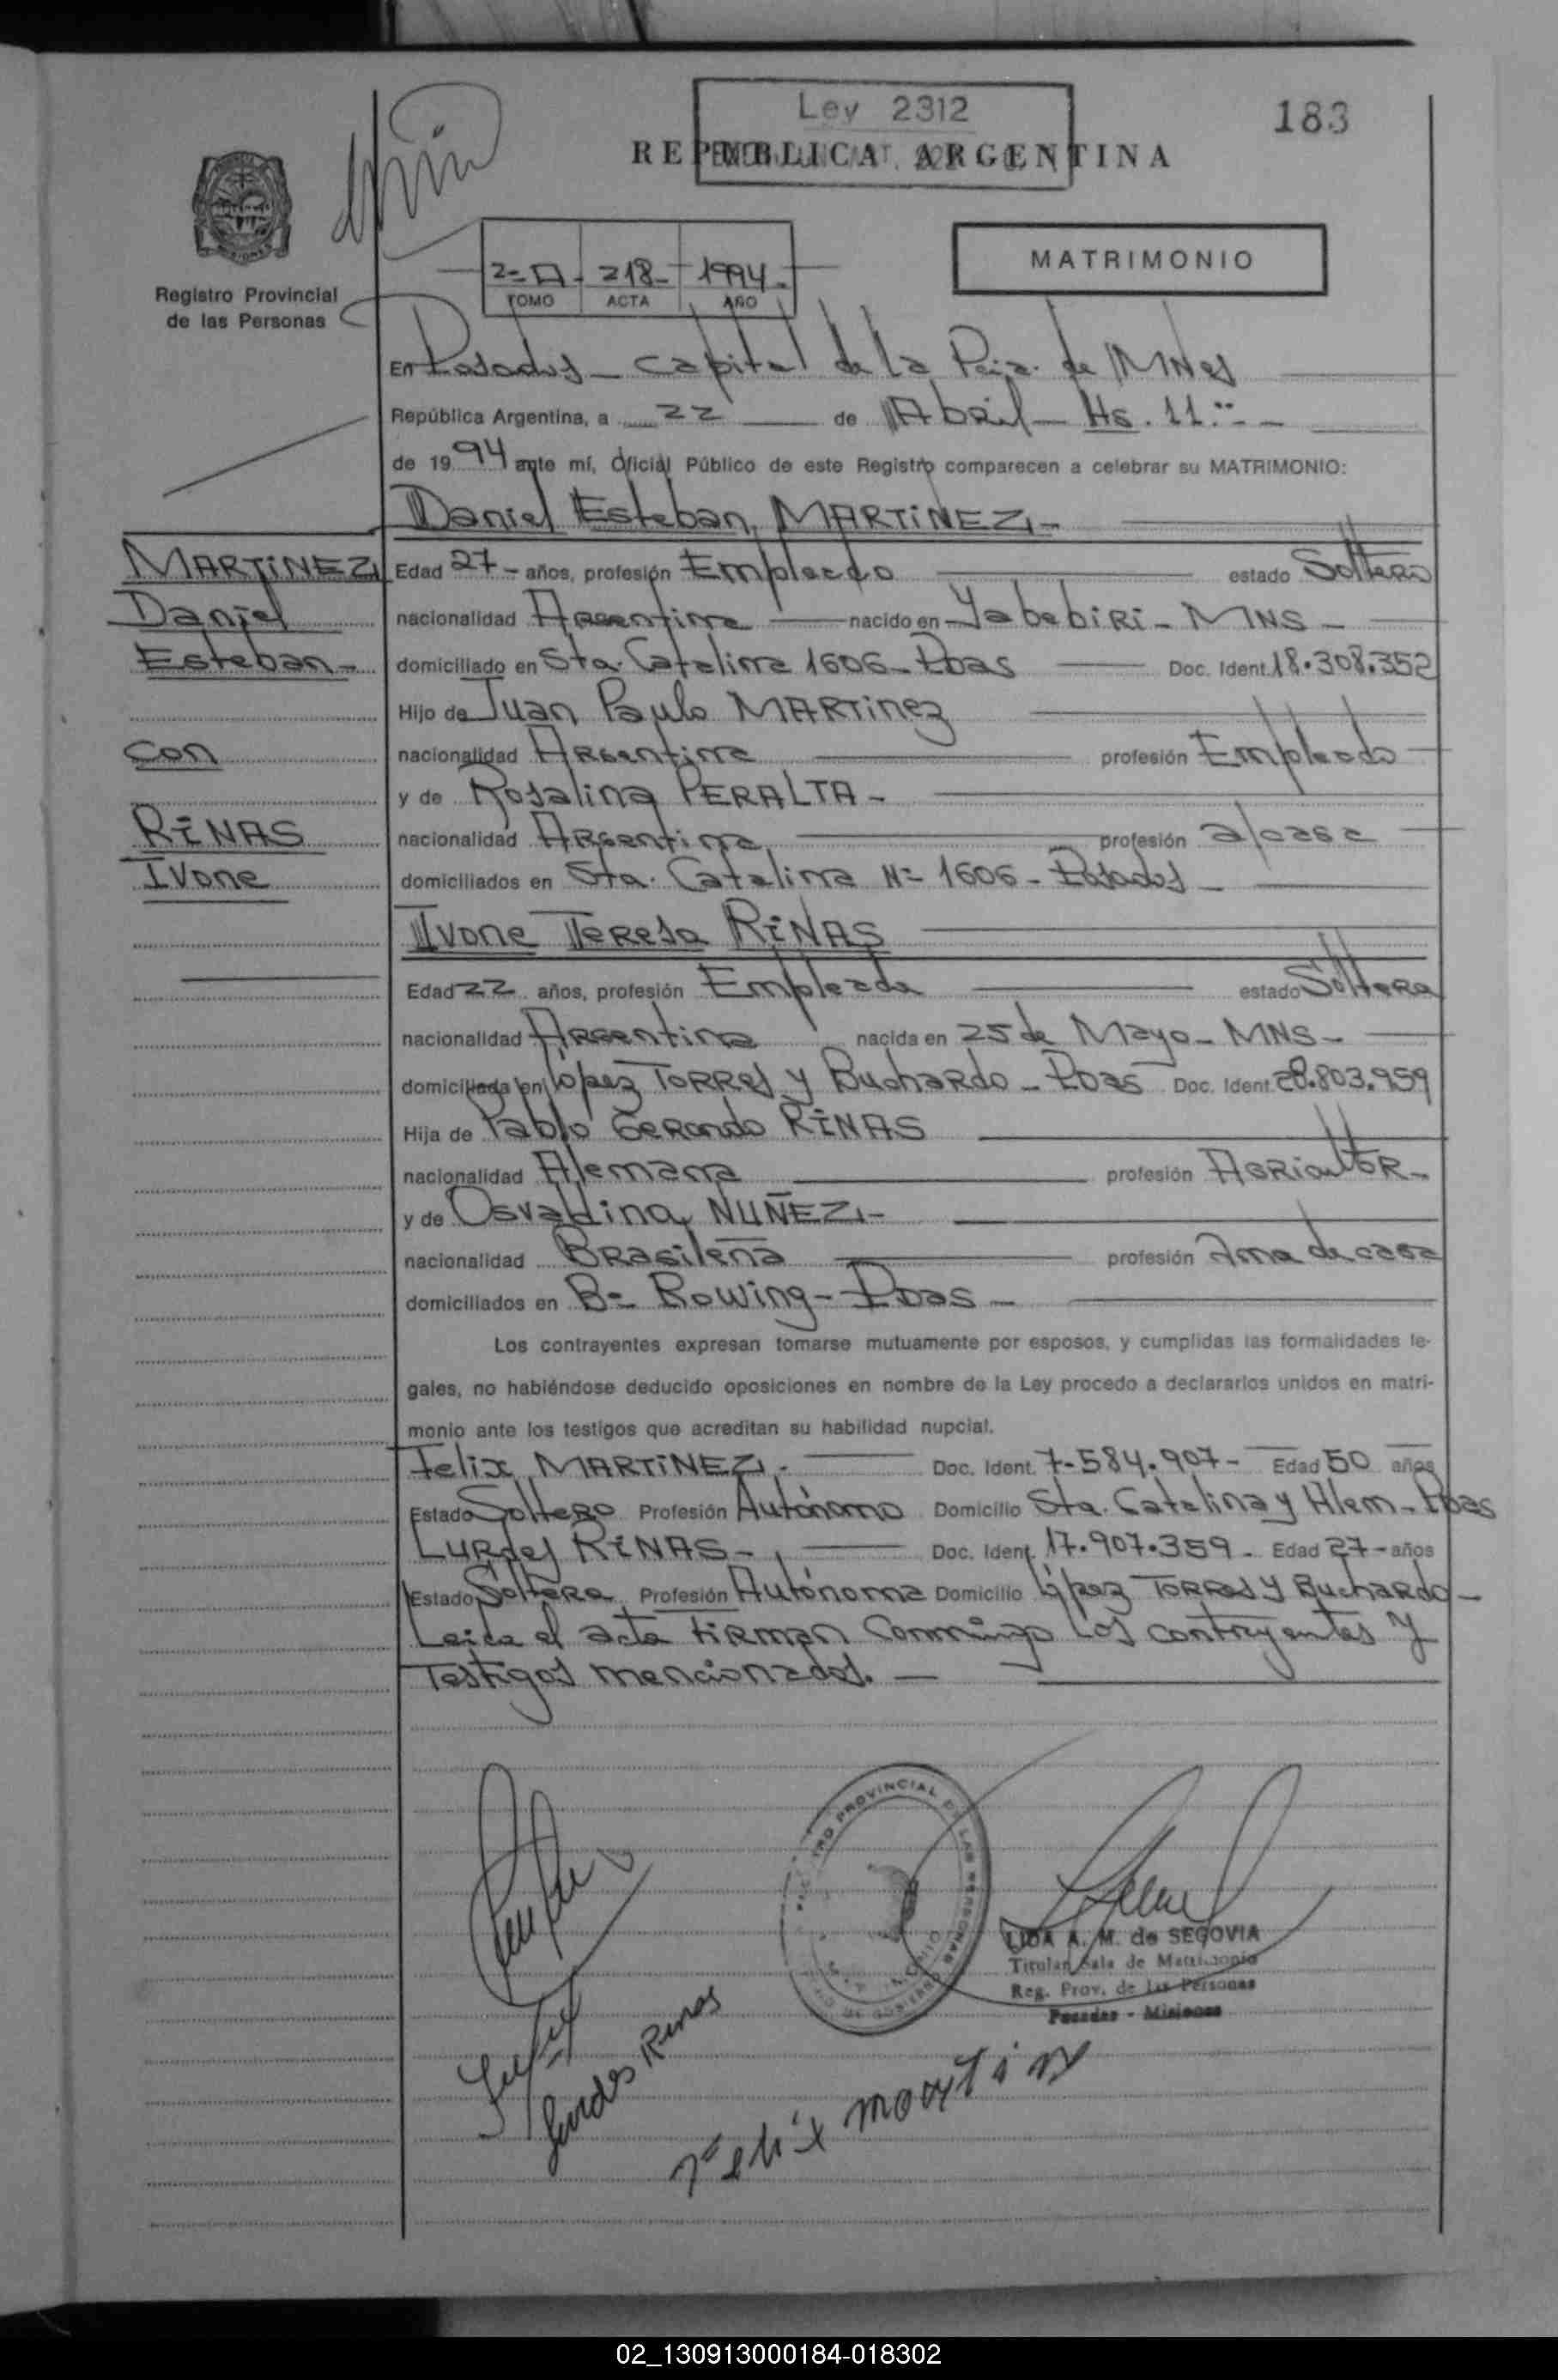 Ley 2312
183
REPUBLICA ARGENTINA
MATRIMONIO
2-A- 218- 1994-
TOMO ACTA AÑO
Registro Provincial
de las Personas
En Posadas - Capital de la Pcia. de MNes
República Argentina, a 22 de Abril - Hs. 11:
de 1994 ante mí, Oficial Público de este Registro comparecen a celebrar su MATRIMONIO:
Daniel Esteban MARTINEZ -
MARTINEZ
Daniel
Esteban -
con
RINAS
Ivone
Edad 27 - años, profesión Empleado estado Soltero
nacionalidad Argentina nacido en Yabebiri - MNS -
domiciliado en Sta. Catalina 1606 - Pdas Doc. Ident. 18.308.352
Hijo de Juan Paulo MARTINEZ
nacionalidad Argentina profesión Empleado
y de Rosalina PERALTA -
nacionalidad Argentina profesión a/casa
domiciliados en Sta. Catalina Nº 1606 - Posadas -
Ivone Teresa RINAS
Edad 22 años, profesión Empleada estado Soltera
nacionalidad Argentina nacida en 25 de Mayo - MNS -
domiciliada en López TORRES y Buchardo - Pdas Doc. Ident. 28.803.959
Hija de Pablo Gerardo RINAS
nacionalidad Alemana profesión Agricultor -
y de Osvaldina NUÑEZ -
nacionalidad Brasileña profesión Ama de casa
domiciliados en Bº Rowing - Pdas -
Los contrayentes expresan tomarse mutuamente por esposos, y cumplidas las formalidades le-
gales, no habiéndose deducido oposiciones en nombre de la Ley procedo a declararlos unidos en matri-
monio ante los testigos que acreditan su habilidad nupcial.
Felix MARTINEZ - Doc. Ident. 7-584.907 - Edad 50 años
Estado Soltero Profesión Autónomo Domicilio Sta. Catalina y Alem - Pdas
Lurdes RINAS - Doc. Ident. 17.907.359 - Edad 27 - años
Estado Soltera Profesión Autónoma Domicilio López TORRES y Buchardo -
Leida el acta firman conmigo los contrayentes y
Testigos mencionados. -
REGISTRO PROVINCIAL DE LAS PERSONAS
LIDA A. M. de SEGOVIA
Titular Sala de Matrimonio
Reg. Prov. de las Personas
Posadas - Misiones
Lurdes Rinas
Felix martin
02_130913000184-018302